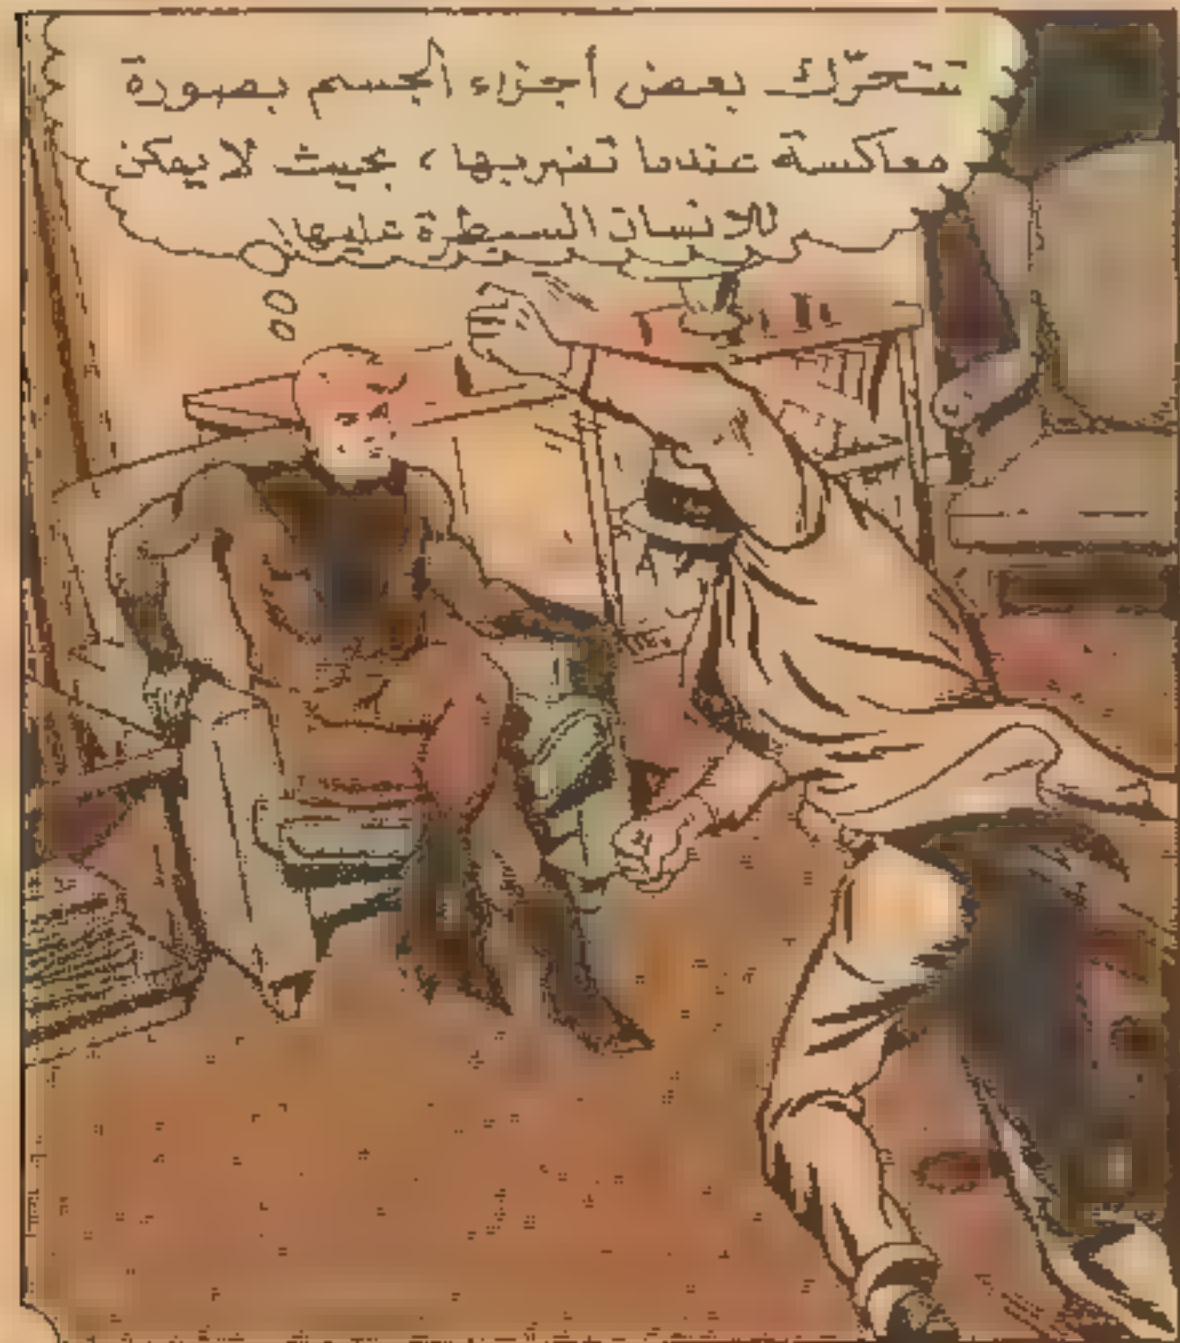 تتحرّك بعض أجزاء الجسم بصورة
معاكسة عندما تضربها، بحيث لا يمكن
للانسان السيطرة عليها!